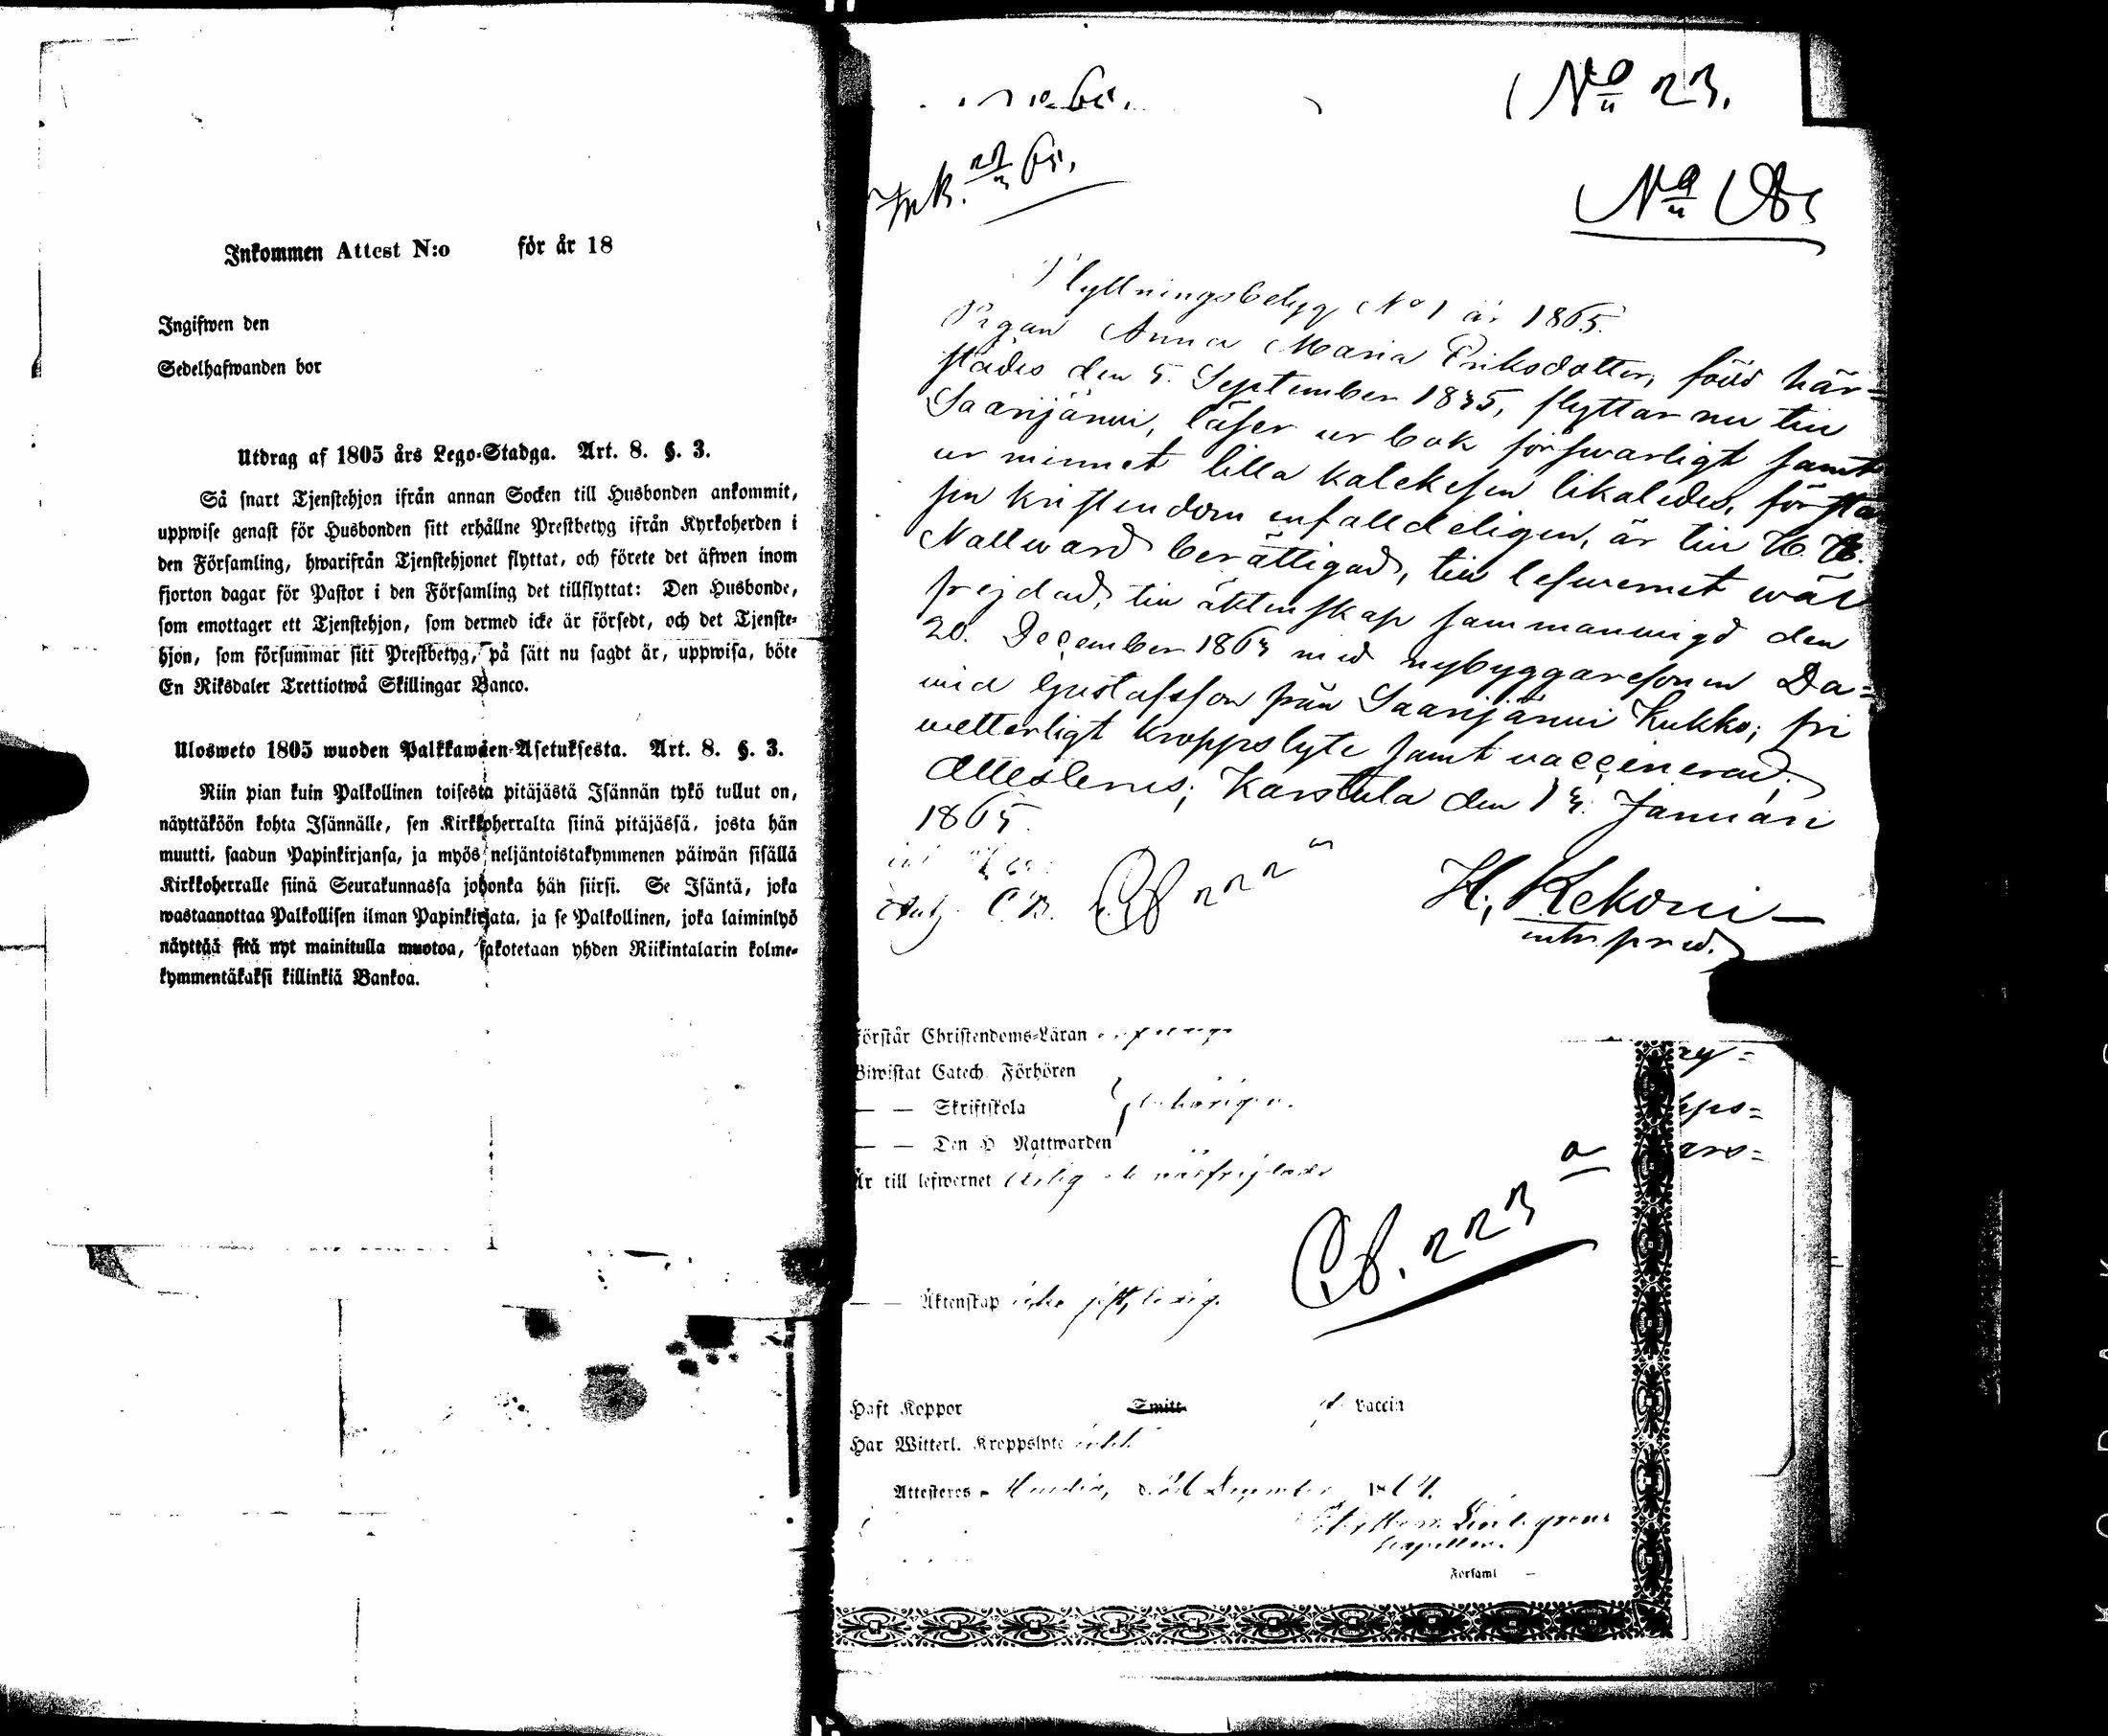 Inkommen Attest N:o för år 18
Ingifwen den
Sedelhafwanden bor
Utdrag af 1805 års Lego-Stadga. Art. 8. §. 3.
Så snart Tjenstehjon ifrån annan Socken till Husbonden ankommit,
uppwise genast för Husbonden sitt erhållne Prestbetyg ifrån Kyrkoherden i
den Församling, hwarifrån Tjenstehjonet flyttat, och förete det äfwen inom
fjorton dagar för Pastor i den Församling det tillflyttat: Den Husbonde,
som emottager ett Tjenstehjon, som dermed icke är försedt, och det Tjenste-
hjon, som försummar sitt Prestbetyg, på sätt nu sagdt är, uppwisa, böte
En Riksdaler Trettiotwå Skillingar Banco.
Ulosweto 1805 wuoden Palkkawäen-Asetuksesta. Art. 8. §. 3.
Niin pian kuin Palkollinen toisesta pitäjästä Isännän tykö tullut on,
näyttäköön kohta Isännälle, sen Kirkkoherralta siinä pitäjässä, josta hän
muutti, saadun Papinkirjansa, ja myös neljäntoistakymmenen päiwän sisällä
Kirkkoherralle siinä Seurakunnassa johonka hän siirsi. Se Isäntä, joka
wastaanottaa Palkollisen ilman Papinkirjata, ja se Palkollinen, joka laiminlyö
näyttää sitä nyt mainitulla muotoa, sakotetaan yhden Riikintalarin kolme-
kymmentäkaksi killinkiä Bankoa.
No 23.
Flyttningsbetyg No 1 år 1865.
Pigan Anna Maria Eriksdotter, född här-
städes den 5. September 1835, flyttar nu till
Saarijärwi, läser ur bok förswarligt samt
ur minnet lilla katekesen likaledes, förstår
sin kristendom enfalldeligen, är till H. H.
Nattward berättigad, till lefwernet wäl
frejdad, till äktenskap sammanwigd den
20. December 1863 med nybyggaresonen Da-
wid Gustafsson från Saarijärwi Kukko; fri
wetterligt kroppslyte samt vaccinerad;
Attesteras; Karstula den 13. Januari
1865.
H. Kekoni
Cb 222
förstår Christendoms-Läran
Biwistat Catech. Förhören
— — Skriftskola
— — Den H. Nattwarden
Är till lefwernet ärlig
Cb. 223 a
— — Äktenskap icke gift, ledig.
Haft Koppor Smitt Vaccin
Har Witterl. Kroppslyte
Attesteras December 1864.
Lindegren
Capellan.
Församl
KODAK